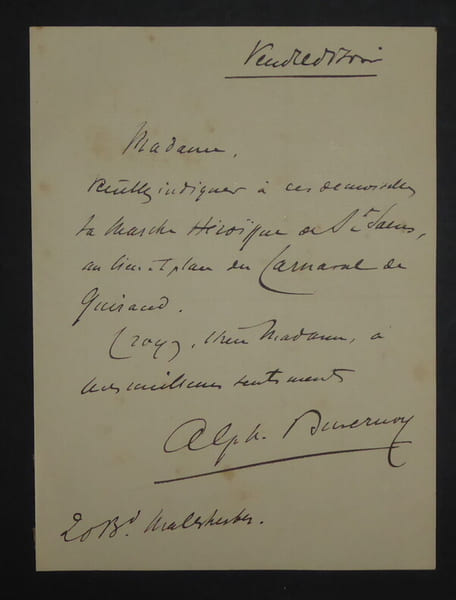 Vendredi soir
Madame,
Veuillez indiquer à ces demoiselles
la Marche Héroïque de St Saens,
au lieu et place du Carnaval de
Guiraud.
Croyez, chère Madame, à
mes meilleurs sentiments
Alph. Duvernoy
20 Bd. Malesherbes.